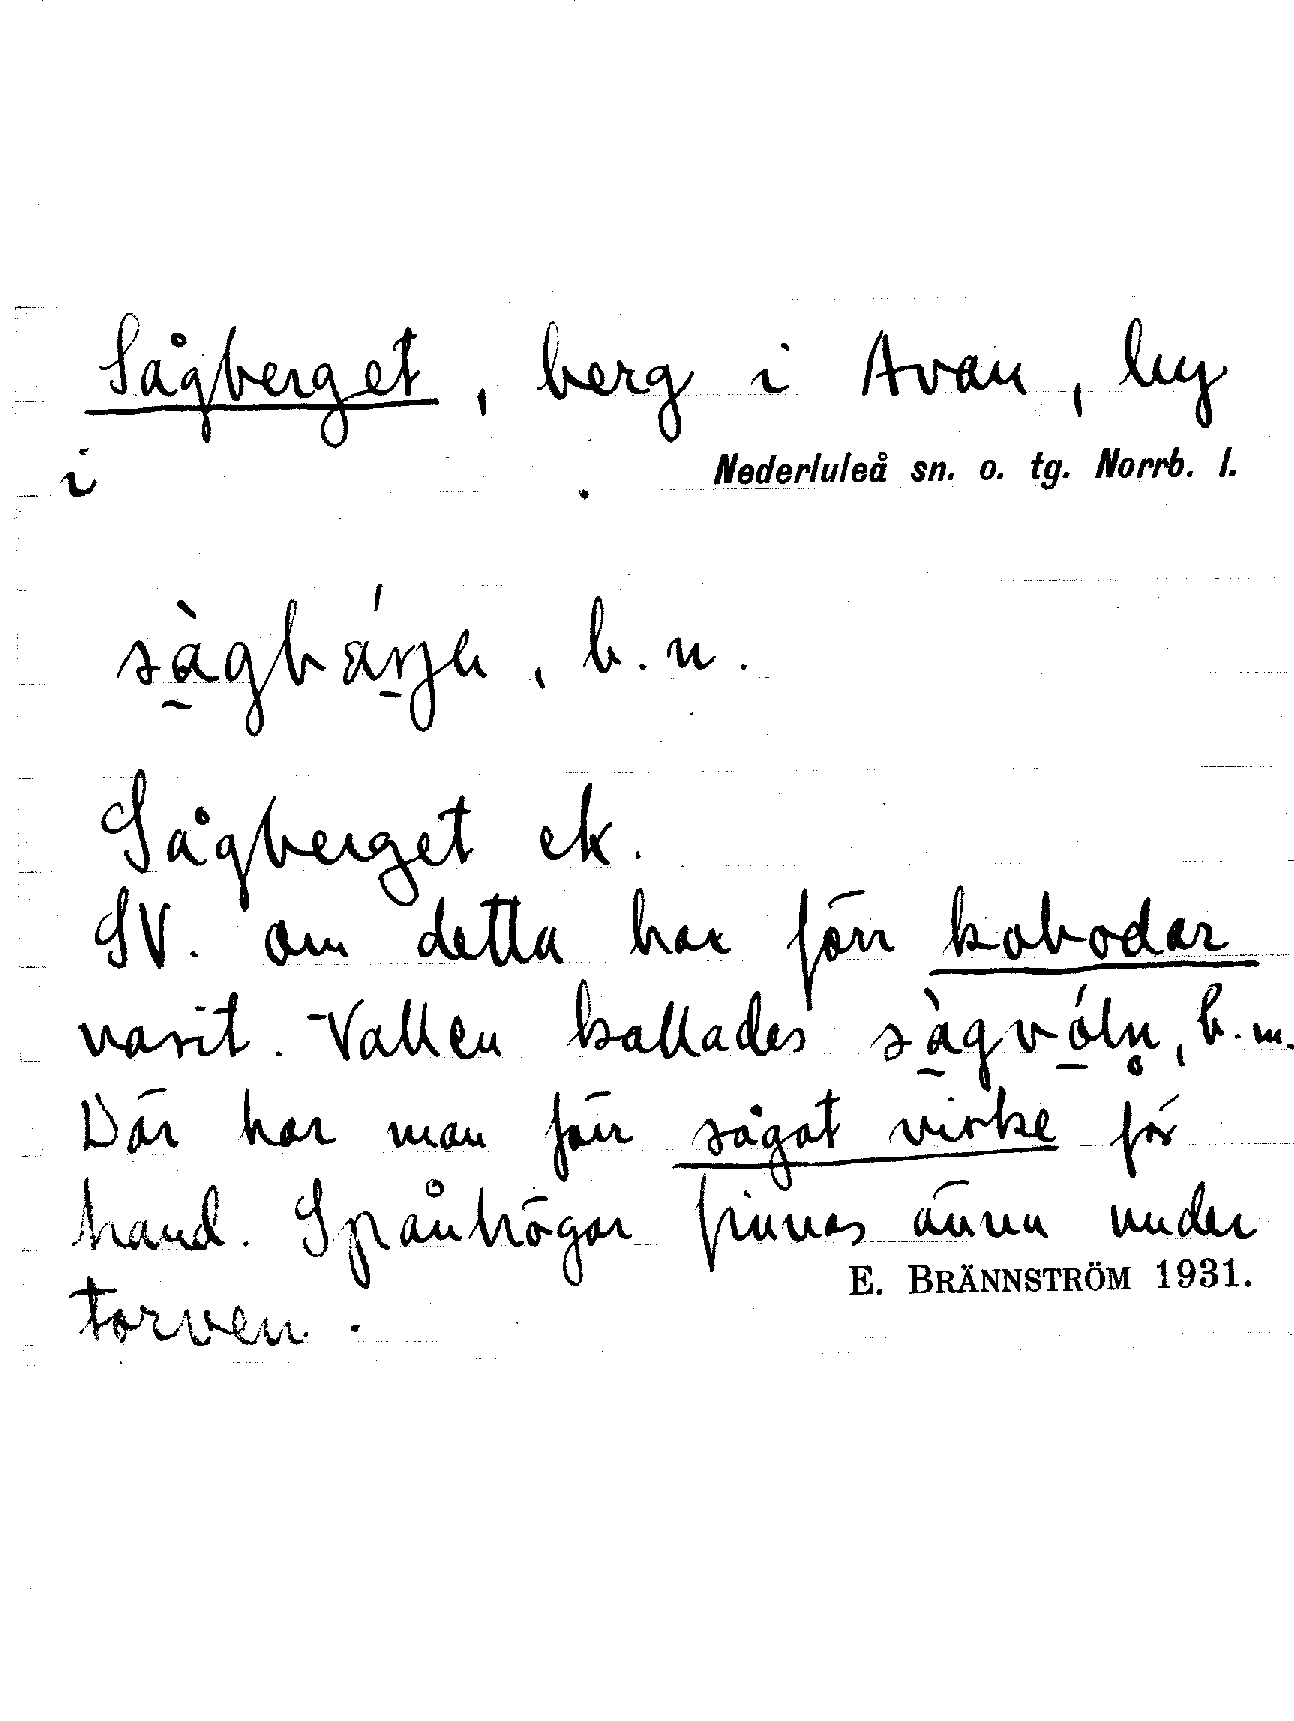 Sågberget, berg i Avan, by
i Nederluleå sn. o. tg. Norrb. l.
b. n.
Sågberget ek.
SV. om detta har förr kobodar
varit. Vallen kallades b. m.
Där har man förr sågat virke för
hand. Spånhögar finnas ännu under
E. BRÄNNSTRÖM 1931.
torven.